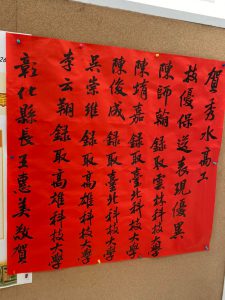 賀秀水高工
技優保送表現優異
陳師翰錄取雲林科技大學
陳堉嘉錄取臺北科技大學
陳俊成錄取臺北科技大學
吳崇維錄取高雄科技大學
李云翔錄取高雄科技大學
彰化縣長王惠美敬賀